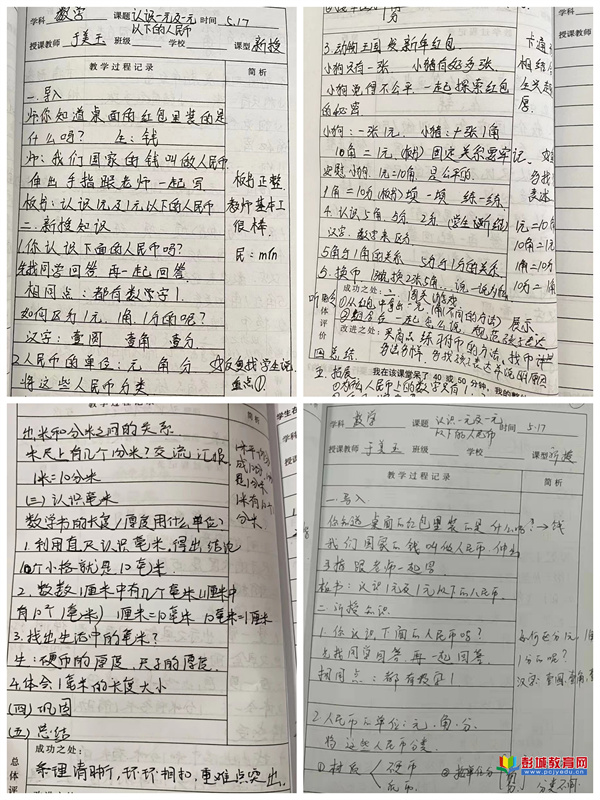 学科 数学 课题 认识一元及一元以下的人民币 时间 5.17
授课教师 于美玉 班级 学校 课型 新授
教学过程记录 简析
一.导入
师:你知道桌面的红包里装的是
什么吗? 生:钱
师:我们国家的钱叫做人民币
伸出手指跟老师一起写
板书:认识1元及1元以下的人民币
板书正整,
教师基本工
很棒.
二.新授知识
1.你认识下面的人民币吗?
民:mín
先找同学回答 再一起回答.
相同点:都有数字1
如何区分1元,1角,1分的呢?
汉字:壹圆 壹角 壹分
2.人民币的单位:元 角 分
将这些人民币分类
3.动物王国发新年红包
小狗只有一张 小猪有好多张
小狗觉得不公平,一起探索红包
的秘密
小狗:一张1元. 小猪:十张1角
10角=1元.(板书)固定关系要牢记.
1元=10角 是公平的.
1角=10分(板书)填一填 练一练.
4.认识5角 5分 2分
汉字、数字来区分
5角与1角的关系 5分与1分的关系
1元=10角
10角=1元
1角=10分
10分=1角
5.换币.
成功之处:
改进之处:
四.总结.
五.拓展
我在该课堂呆了 40 或 50 分钟,我的整
教学过程记录 简析
出米和分米之间的关系
米尺上有几个1分米?交流 汇报.
1米=10分米
(三)认识毫米
数学书的长度/厚度用什么单位?
1.利用直尺认识毫米,得出结论
1个小格就是1毫米.
2.数数1厘米中有几个毫米(1厘米中
有10个1毫米) 1厘米=10毫米 10毫米=1厘米
3.找出生活中的毫米?
生:硬币的厚度、尺子的厚度.
4.体会1毫米的长度大小
(四)巩固
(五)总结
成功之处:
条理清晰,环环相扣,重难点突出.
总体评
学科 数学 课题 认识一元及一元以下的人民币 时间 5.17
授课教师 于美玉 班级 学校 课型 新授
教学过程记录 简析
一.导入
你知道桌面的红包里装的是什么吗?→钱
我们国家的钱叫做人民币 伸出
手指跟老师一起写
板书:认识1元及1元以下的人民币.
二.新授知识
1.你认识下面的人民币吗?
先找同学回答 再一起回答
相同点:都有数字1
如何区分1元,1角
1分的呢?
汉字:壹圆,壹角,
2.人民币的单位:元、角、分.
将这些人民币分类.
①材质 硬币
纸币.
彭城教育网
www.pcjyedu.com